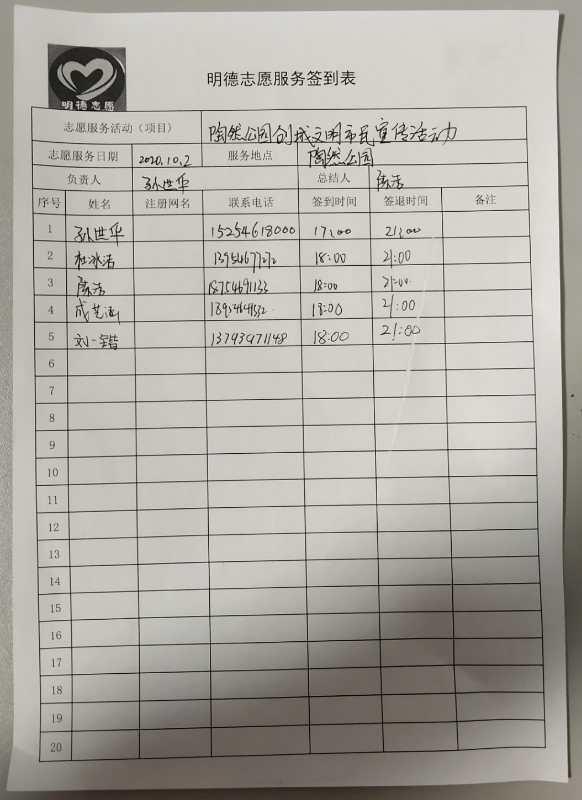 明德志愿
明德志愿服务签到表
志愿服务活动（项目） 陶然公园创城文明市民宣传活动
志愿服务日期 2020.10.2 服务地点 陶然公园
负责人 孙世华 总结人 陈洁
序号 姓名 注册网名 联系电话 签到时间 签退时间 备注
1 孙世华 15254618000 17:00 21:00
2 杜冰洁 18:00 21:00
3 陈洁 18754691133 18:00 21:00
4 18:00 21:00
5 刘一锴 13793971148 18:00 21:00
6
7
8
9
10
11
12
13
14
15
16
17
18
19
20